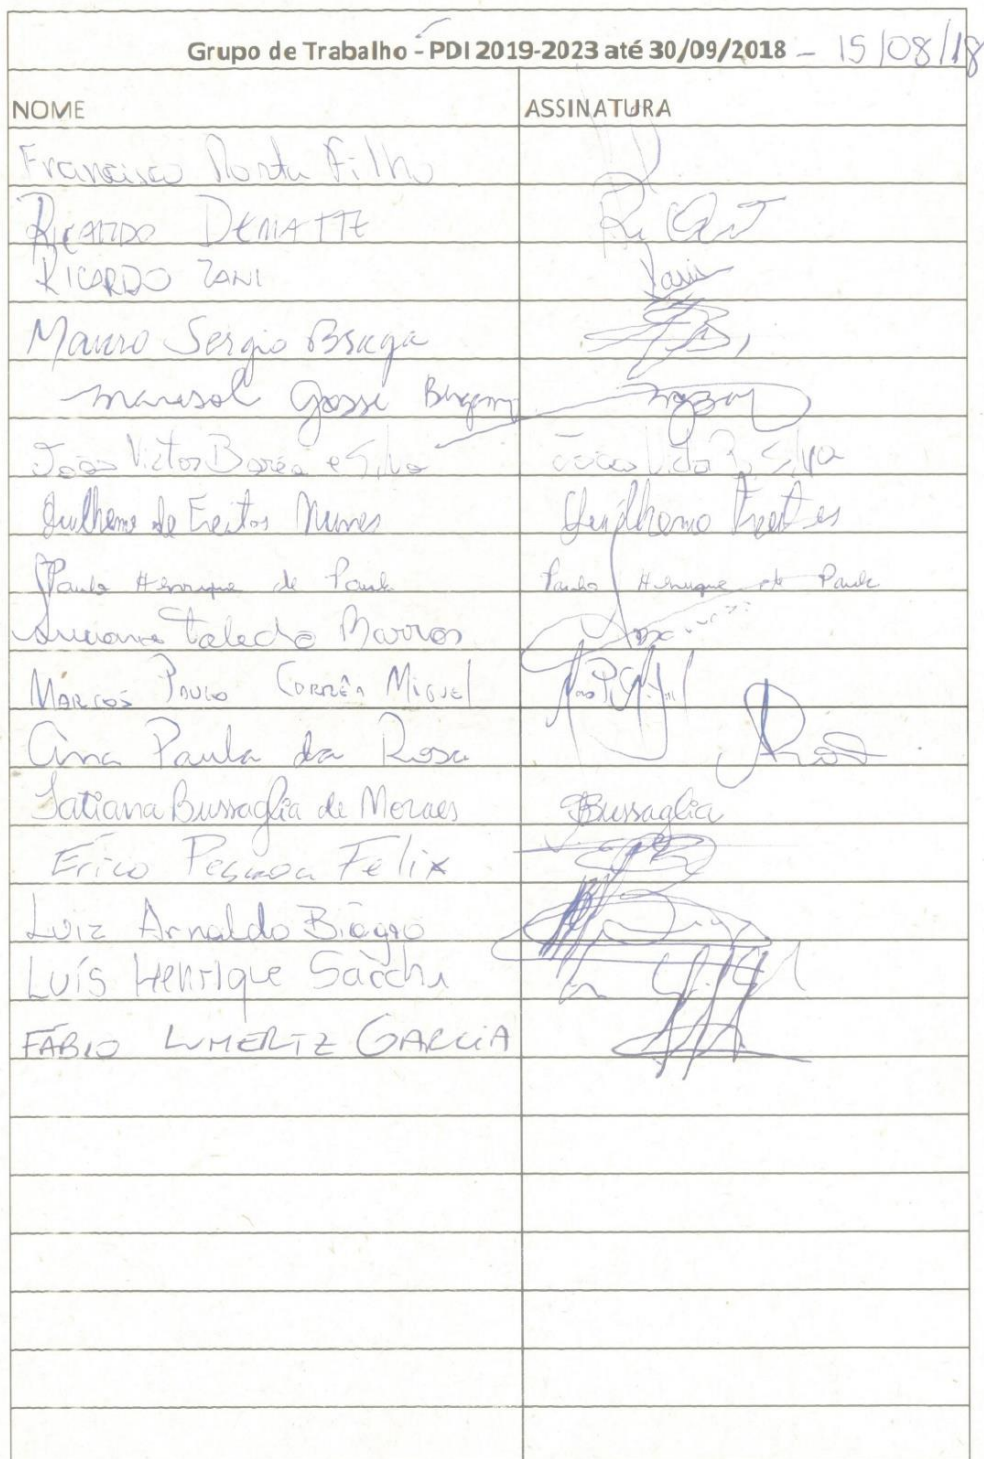 Grupo de Trabalho - PDI 2019-2023 até 30/09/2018 - 15/08/18
NOME ASSINATURA
Francisco Filho
RICARDO DEMATTE
RICARDO ZANI Zani
Mauro Sergio Braga
Marisol Gossi
João Victor Barão e Silva João Victo B. Silva
Guilherme de Freitas Nunes Guilherme Freitas
Paulo Henrique de Paula Paulo Henrique de Paula
Luciana Toledo Barros
MARCOS PAULO CORRÊA MIGUEL
Ana Paula da Rosa
Tatiana Bussaglia de Moraes Bussaglia
Erico Pessoa Felix
Luiz Arnaldo Biaggio
Luís Henrique Sacchi
FÁBIO LUMERTZ GARCIA